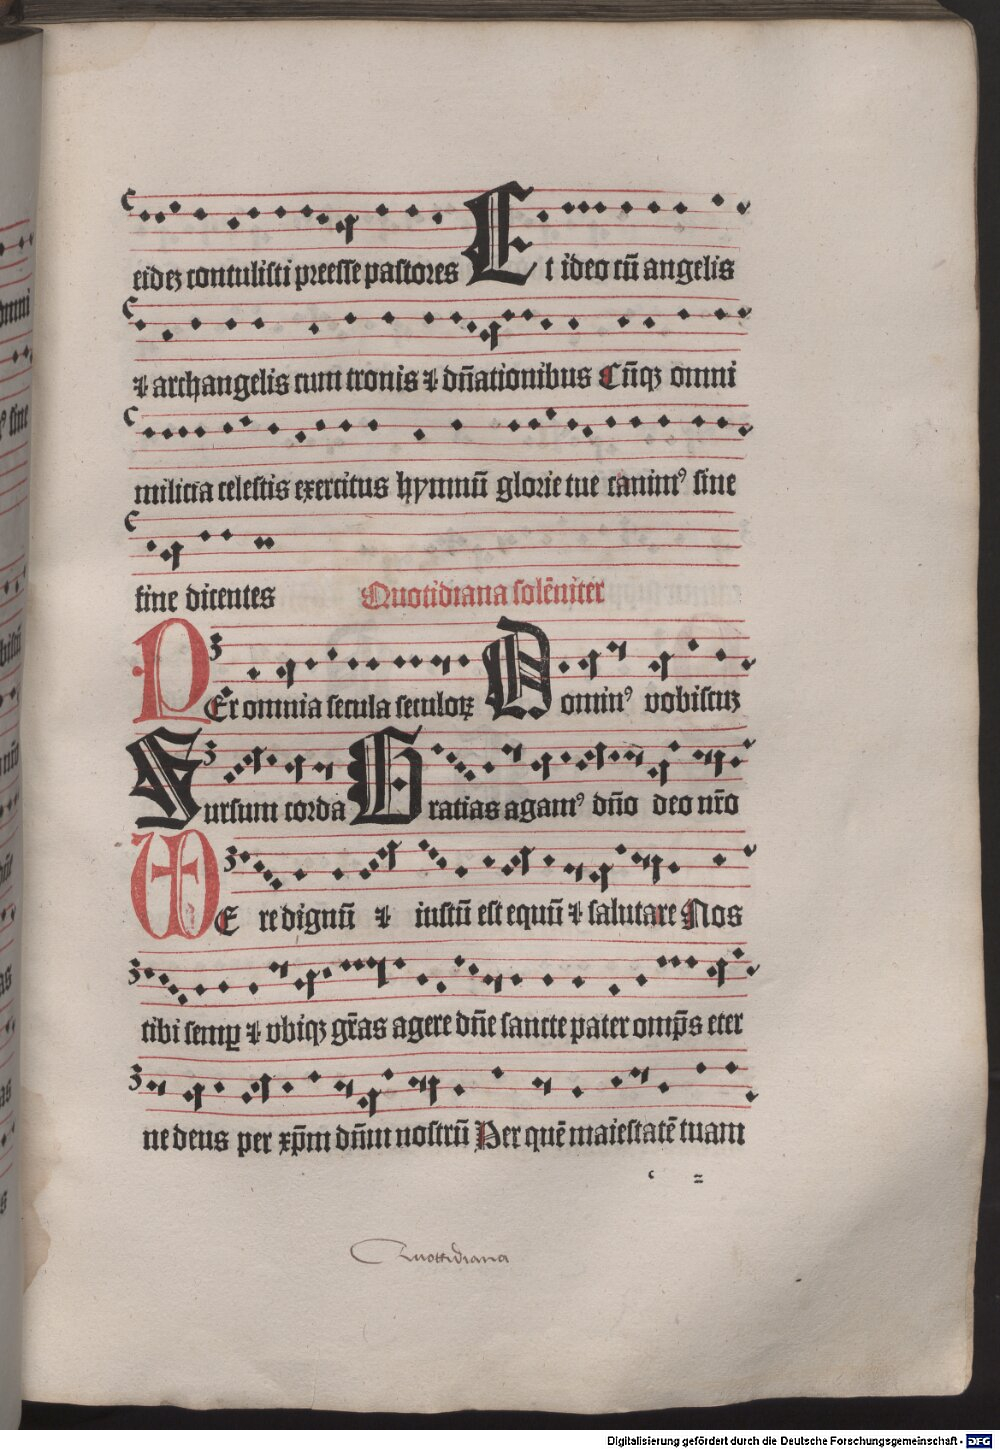 eidez contulisti preesse pastores Et ideo cū angelis
⁊ archangelis cum tronis ⁊ dn̄ationibus Cūqz omni
milicia celestis exercitus hymnū glorie tue canimꝰ sine
fine dicentes Quotidiana solēniter
PEr omnia secula seculoꝝ Dominꝰ vobiscuz
Sursum corda Gratias agamꝰ dn̄o deo nr̄o
VEre dignū ⁊ iustū est equū ⁊ salutare Nos
tibi semꝑ ⁊ vbiqz gr̄as agere dn̄e sancte pater omp̄s eter
ne deus per xp̄m dn̄m nostrū Per quē maiestatē tuam
Quottidiana
Digitalisierung gefördert durch die Deutsche Forschungsgemeinschaft - DFG